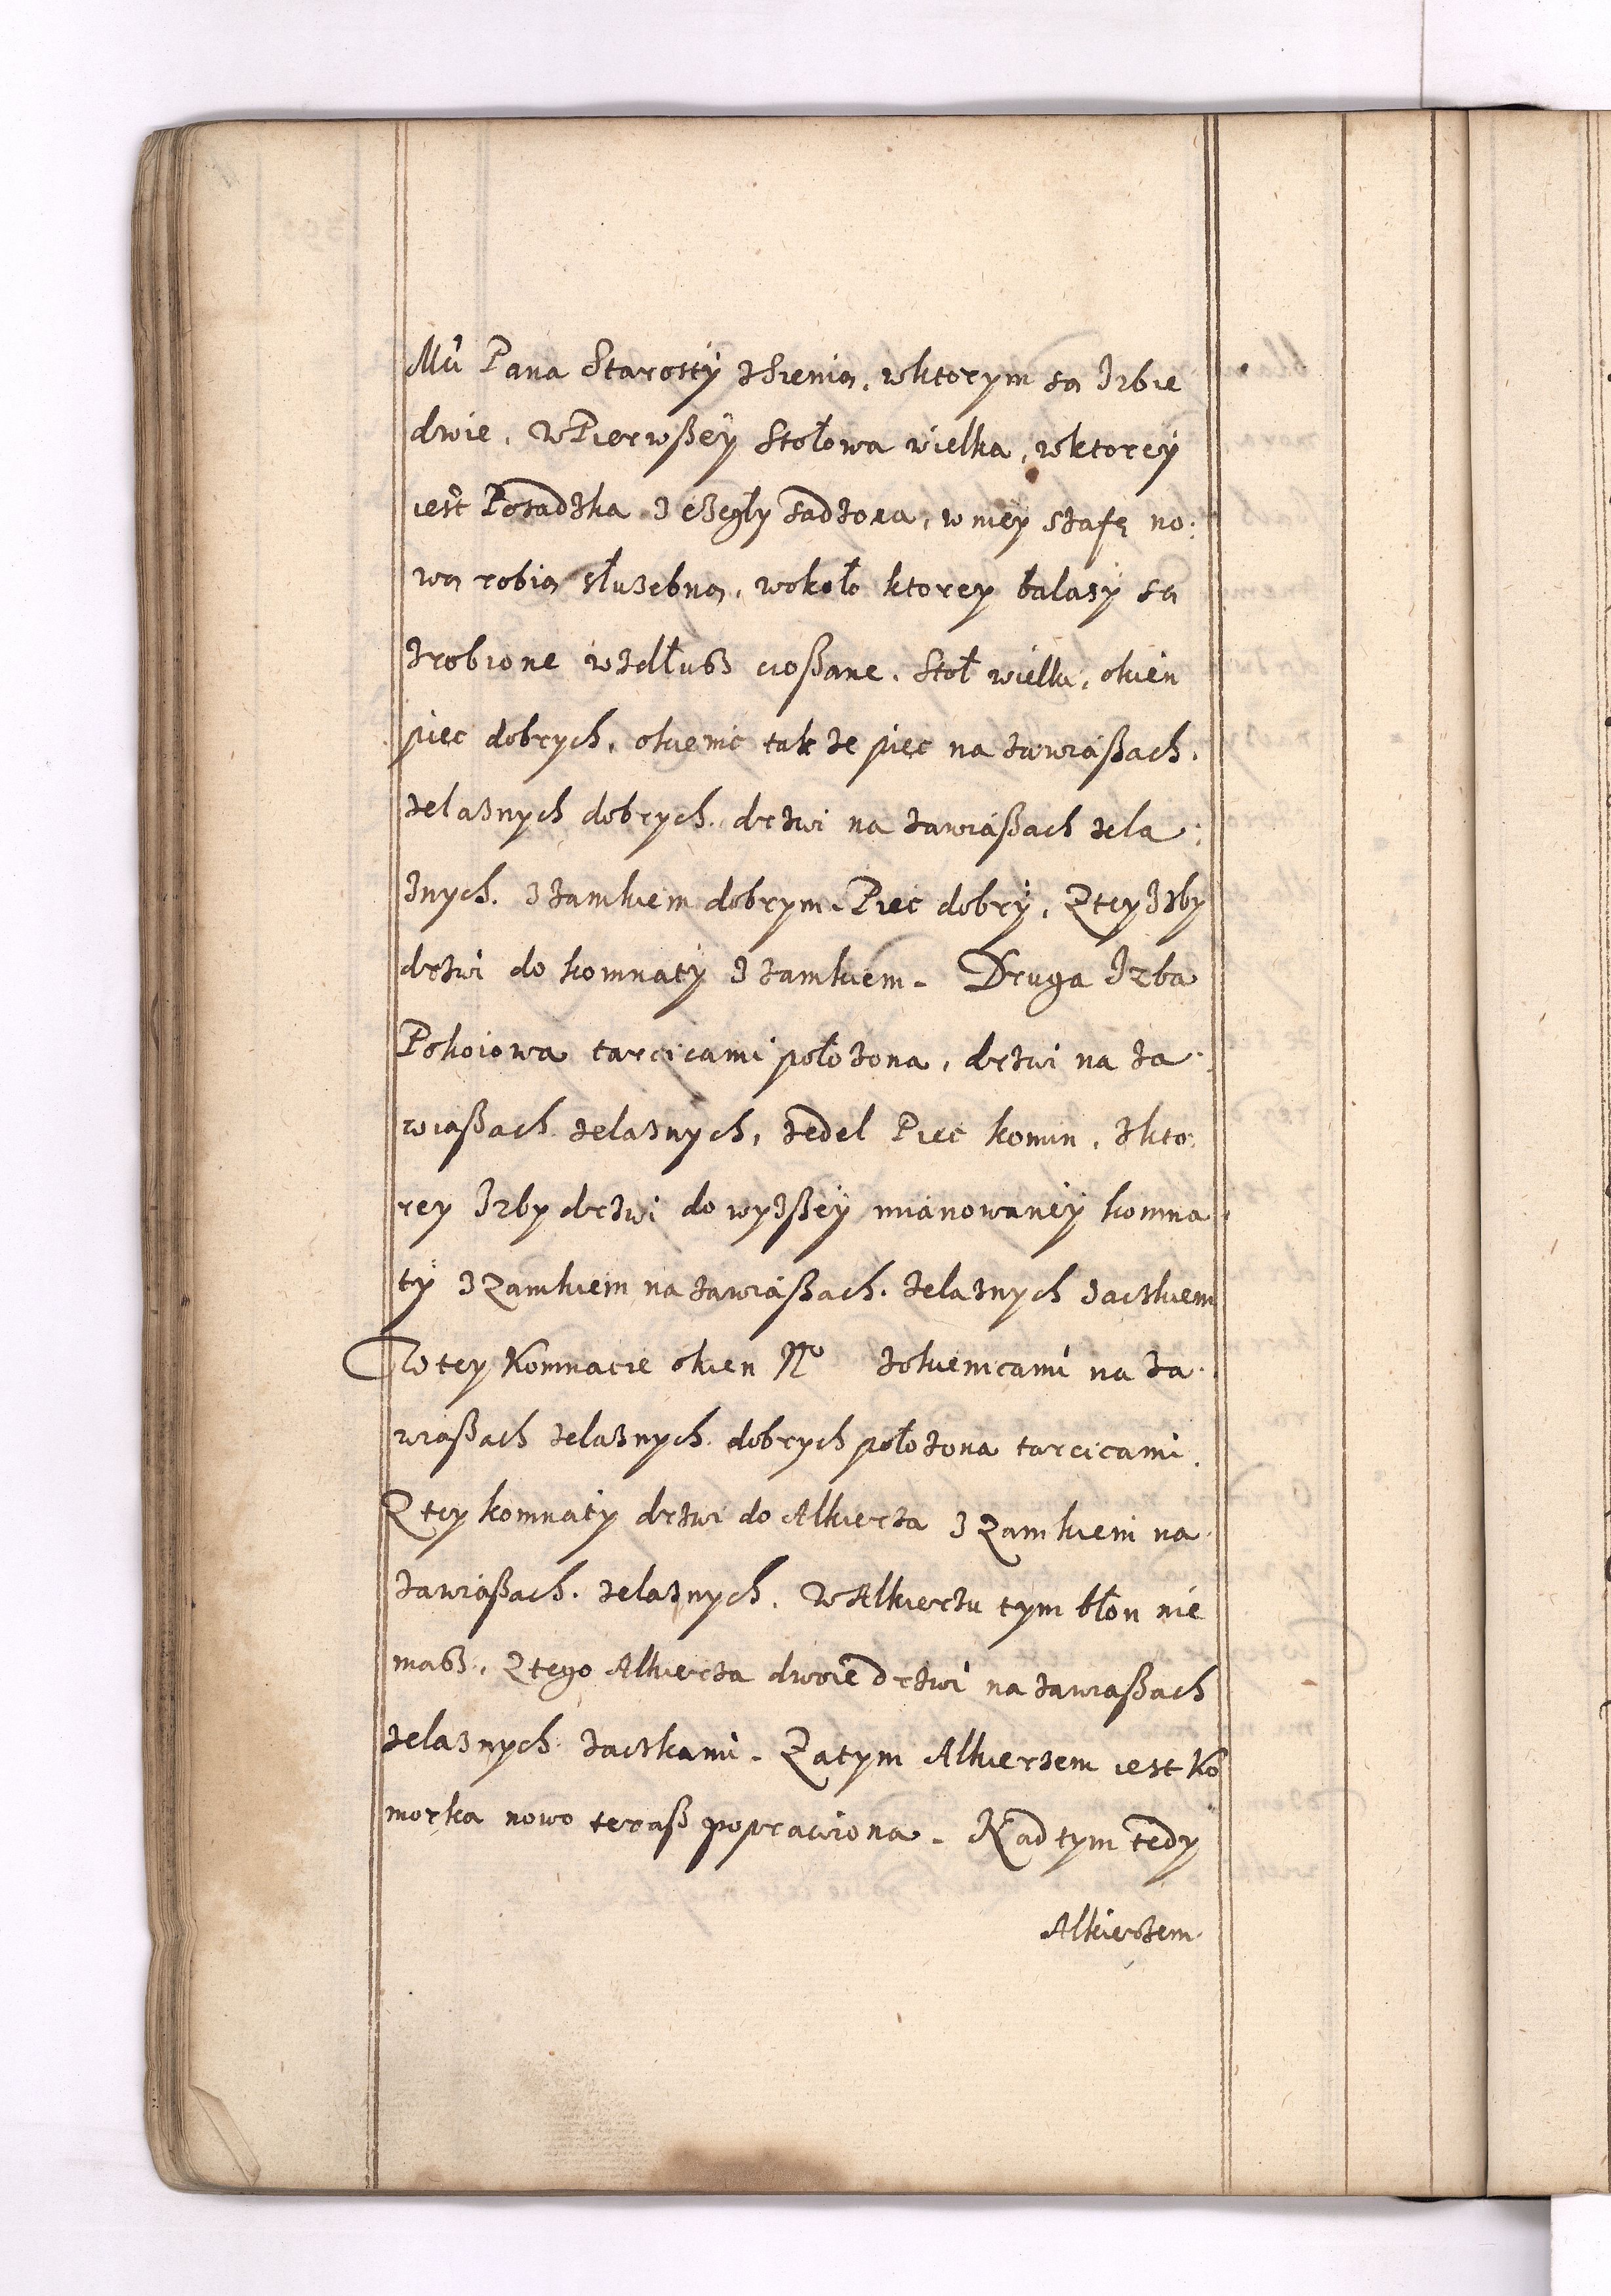 Mci Pana Starosty zsienią, wktorym są Izbie
dwie, WPierwßey Stołowa wielka, wktorey
iest Posadzka z czegły sadzona, w niey szafę no:
wą robią słuzebną, wokoło ktorey balasy są
zrobione wzdłuß cioßane. Stoł wielki, okien
piec dobrych, okienic takze piec na zawiaßach
zelaznych dobrych, drzwi na zawiaßach zela:
znych. z zamkiem dobrym. Piec dobry, Z tey Izby
drzwi do komnaty z zamkiem. Druga Izba
Pokoiowa tarcicami położona, drzwi na za:
wiaßach zelaznych, zedel Piec komin, z kto:
rey Izby drzwi do wyzßey mianowaney komna:
ty z Zamkiem na zawiaßach. zelaznych zaczkiem
W tey Komnacie okien No zokienicami na za:
wiaßach zelaznych dobrych położona tarcicami.
Z tey komnaty drzwi do Alkierza z Zamkiem na
zawiaßach. zelaznych. W Alkierzu tym błon nie
maß, Z tego Alkierza dwoie drzwi na zawiaßach
zelaznych zaczkami. Za tym Alkierzem iest Ko
morka nowo teraß poprawiona. Nad tym tedy
Alkierzem